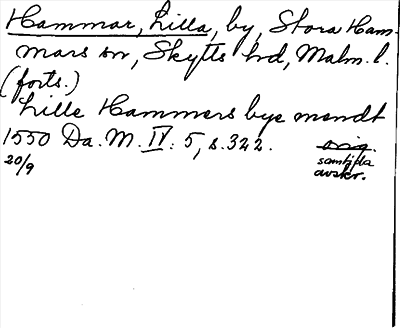 Hammar, Lilla, by, Stora Ham-
mars sn, Skytts hd, Malm. l.
(forts.)
Lille Hammers bye mendt
1550 Da. M. IV: 5, s. 322. orig.
20/9 samtida
avskr.